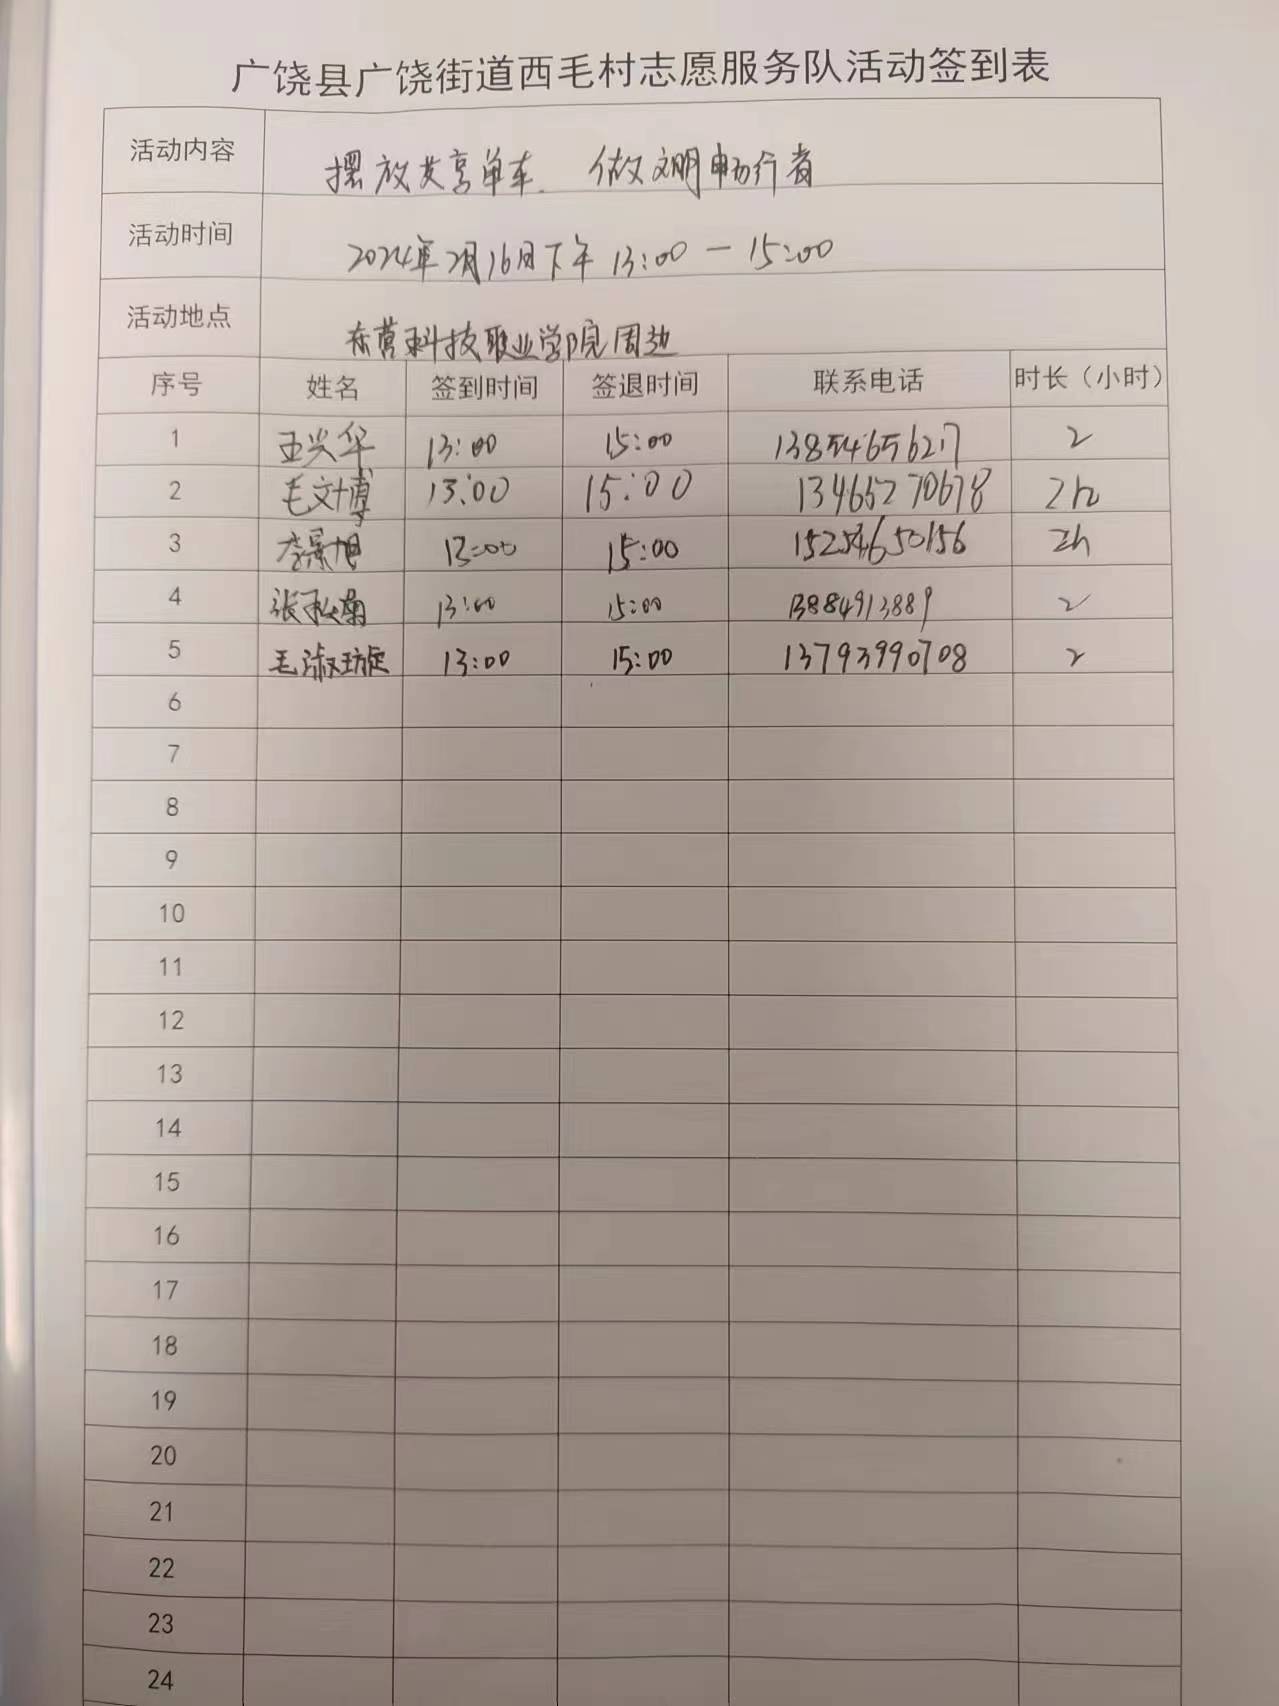 广饶县广饶街道西毛村志愿服务队活动签到表
活动内容 摆放共享单车 做文明畅行者
活动时间 2024年2月16日下午 13:00 — 15:00
活动地点 东营科技职业学院周边
序号 姓名 签到时间 签退时间 联系电话 时长（小时）
1 王兴华 13:00 15:00 13854656217 2
2 毛文博 13:00 15:00 13465270678 2h
3 李景旭 13:00 15:00 15254650156 2h
4 13:00 15:00 13884913889 2
5 毛淑璇 13:00 15:00 13793990708 2
6
7
8
9
10
11
12
13
14
15
16
17
18
19
20
21
22
23
24